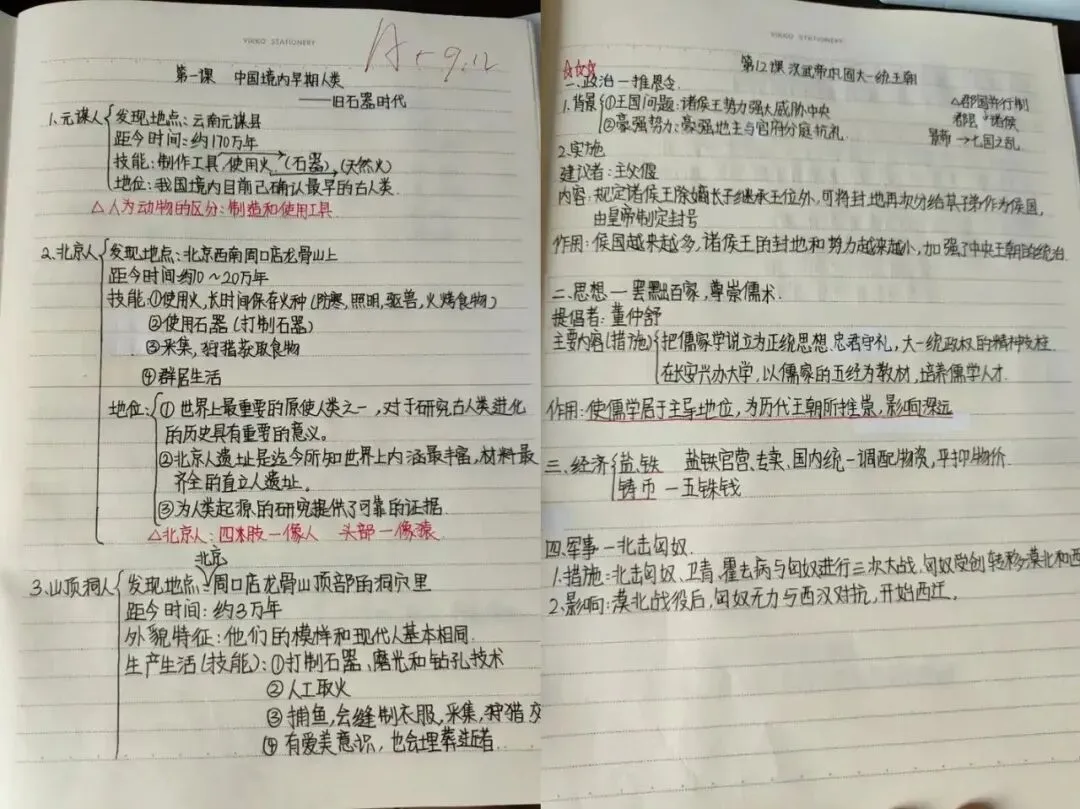 VIKKO STATIONERY
A+ 9.12
第一课 中国境内早期人类
——旧石器时代
1.元谋人 发现地点:云南元谋县
距今时间:约170万年
技能:制作工具,使用火 (石器),(天然火)
地位:我国境内目前已确认最早的古人类.
△人为动物的区分:制造和使用工具.
2.北京人 发现地点:北京西南周口店龙骨山上
距今时间:约70~20万年
技能:①使用火,长时间保存火种(防寒,照明,驱兽,火烤食物)
②使用石器(打制石器)
③采集,狩猎获取食物
④群居生活
地位:①世界上最重要的原使人类之一,对于研究古人类进化
的历史具有重要的意义。
②北京人遗址是迄今所知世界上内涵最丰富,材料最
齐全的直立人遗址.
③为人类起源的研究提供了可靠的证据.
△北京人:四肢一像人 头部一像猿.
北京
3.山顶洞人 发现地点:周口店龙骨山顶部的洞穴里
距今时间:约3万年
外貌特征:他们的模样和现代人基本相同.
生产生活(技能):①打制石器、磨光和钻孔技术
②人工取火
③捕鱼,会缝制衣服,采集,狩猎
④有爱美意识,也会埋葬逝者.
VIKKO STATIONERY
第12课 汉武帝巩固大一统王朝
☆☆☆
一.政治一推恩令.
1.背景 ①王国问题:诸侯王势力强大威胁中央
②豪强势力:豪强地主与官府分庭抗礼.
△郡国并行制
郡县 诸侯
景帝→七国之乱
2.实施
建议者:主父偃
内容:规定诸侯王除嫡长子继承王位外,可将封地再次分给其子弟作为侯国,
由皇帝制定封号
作用:侯国越来越多,诸侯王的封地和势力越来越小,加强了中央王朝的统治.
二.思想一罢黜百家,尊崇儒术.
提倡者:董仲舒
主要内容(措施) 把儒家学说立为正统思想,忠君守礼,大一统政权的精神支柱.
在长安兴办大学,以儒家的五经为教材,培养儒学人才.
作用:使儒学居于主导地位,为历代王朝所推崇,影响深远
三.经济 盐铁 盐铁官营、专卖,国内统一调配物资,平抑物价.
铸币 一五铢钱
四.军事一北击匈奴.
1.措施:北击匈奴、卫青,霍去病与匈奴进行三次大战,匈奴受创转移漠北和西
2.影响:漠北战役后,匈奴无力与西汉对抗,开始西迁。